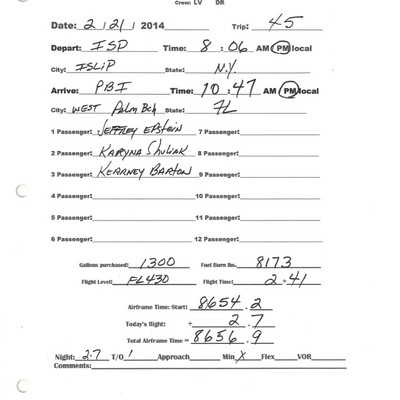 Crew: LV DR
Date: 2 / 21 / 2014 Trip: 45
Depart: ISP Time: 8 : 06 AM / PM local
City: ISLIP State: N.Y.
Arrive: PBI Time: 10 : 47 AM / PM local
City: WEST Palm Bch State: FL
1 Passenger: JEFFREY EPSTEIN 7 Passenger:
2 Passenger: KARYNA SHULIAK 8 Passenger:
3 Passenger: KEARNEY BARTON 9 Passenger:
4 Passenger: 10 Passenger:
5 Passenger: 11 Passenger:
6 Passenger: 12 Passenger:
Gallons purchased: 1300 Fuel Burn lbs. 8173
Flight Level: FL430 Flight Time: 2 + 41
Airframe Time: Start: 8654.2
Today's flight: + 2.7
Total Airframe Time = 8656.9
Night: 2.7 T/O 1 Approach Min X Flex VOR
Comments: